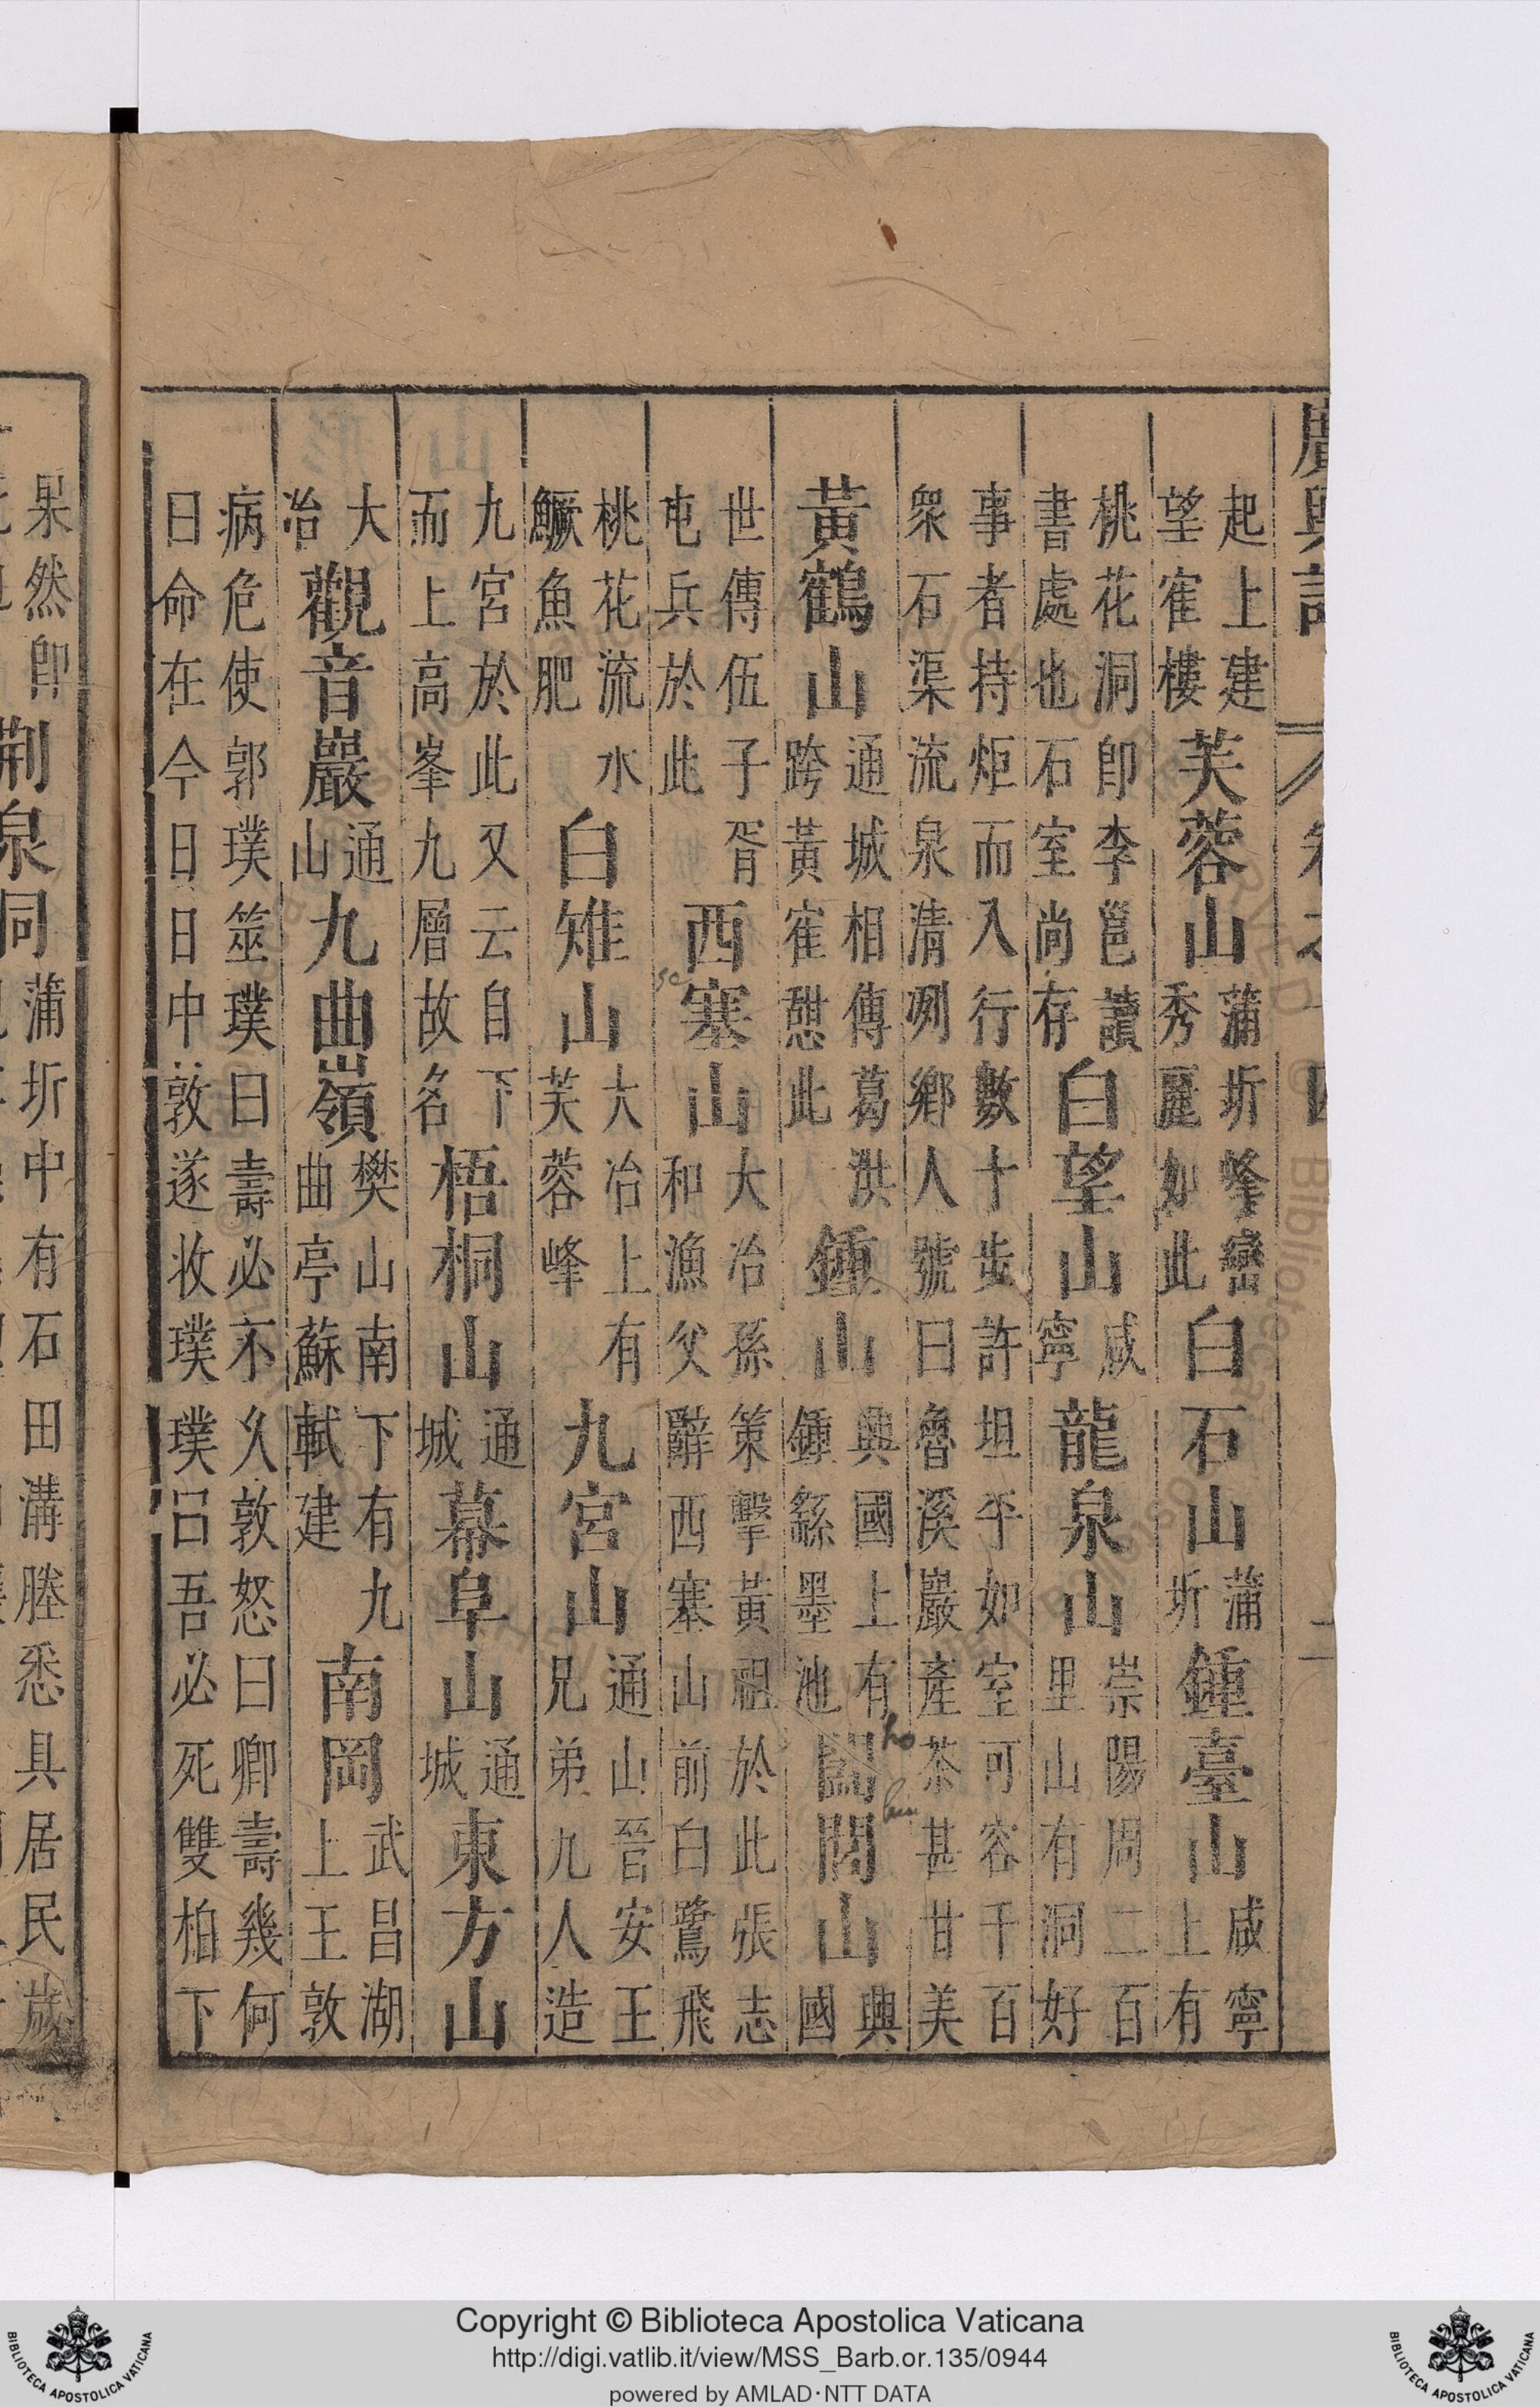 廣輿記
起上建 望隺樓 芙蓉山 蒲圻峰巒 秀麗如此 白石山 蒲圻 鍾臺山 咸寧 上有
桃花洞卽李邕讀 書處也石室尚存 白望山 咸寧 龍泉山 崇陽周二百 里山有洞好
事者持炬而入行數十步許坦平如室可容千百 衆石渠流泉清冽鄉人號曰魯溪巖產茶甚甘美
黃鶴山 通城相傳葛洪 跨黃隺憇此 鍾山 興國上有 鍾繇墨池 闔閭山 興國
世傳伍子胥 屯兵於此 西塞山 大冶孫策擊黃祖於此張志 和漁父辭西塞山前白鷺飛
桃花流水 鱖魚肥 白雉山 大冶上有 芙蓉峰 九宮山 通山晉安王 兄弟九人造
九宮於此又云自下 而上高峯九層故名 梧桐山 通城 幕阜山 通城 東方山
大冶 觀音巖 通山 九曲嶺 樊山南下有九 曲亭蘇軾建 南岡 武昌湖 上王敦
病危使郭璞筮璞曰壽必不久敦怒曰卿壽幾何 曰命在今日日中敦遂收璞璞曰吾必死雙柏下
果然卽 荆泉洞 蒲圻中有石田溝塍悉具居民歲
Copyright © Biblioteca Apostolica Vaticana
http://digi.vatlib.it/view/MSS_Barb.or.135/0944
powered by AMLAD·NTT DATA
BIBLIOTECA APOSTOLICA VATICANA
BIBLIOTECA APOSTOLICA VATICANA